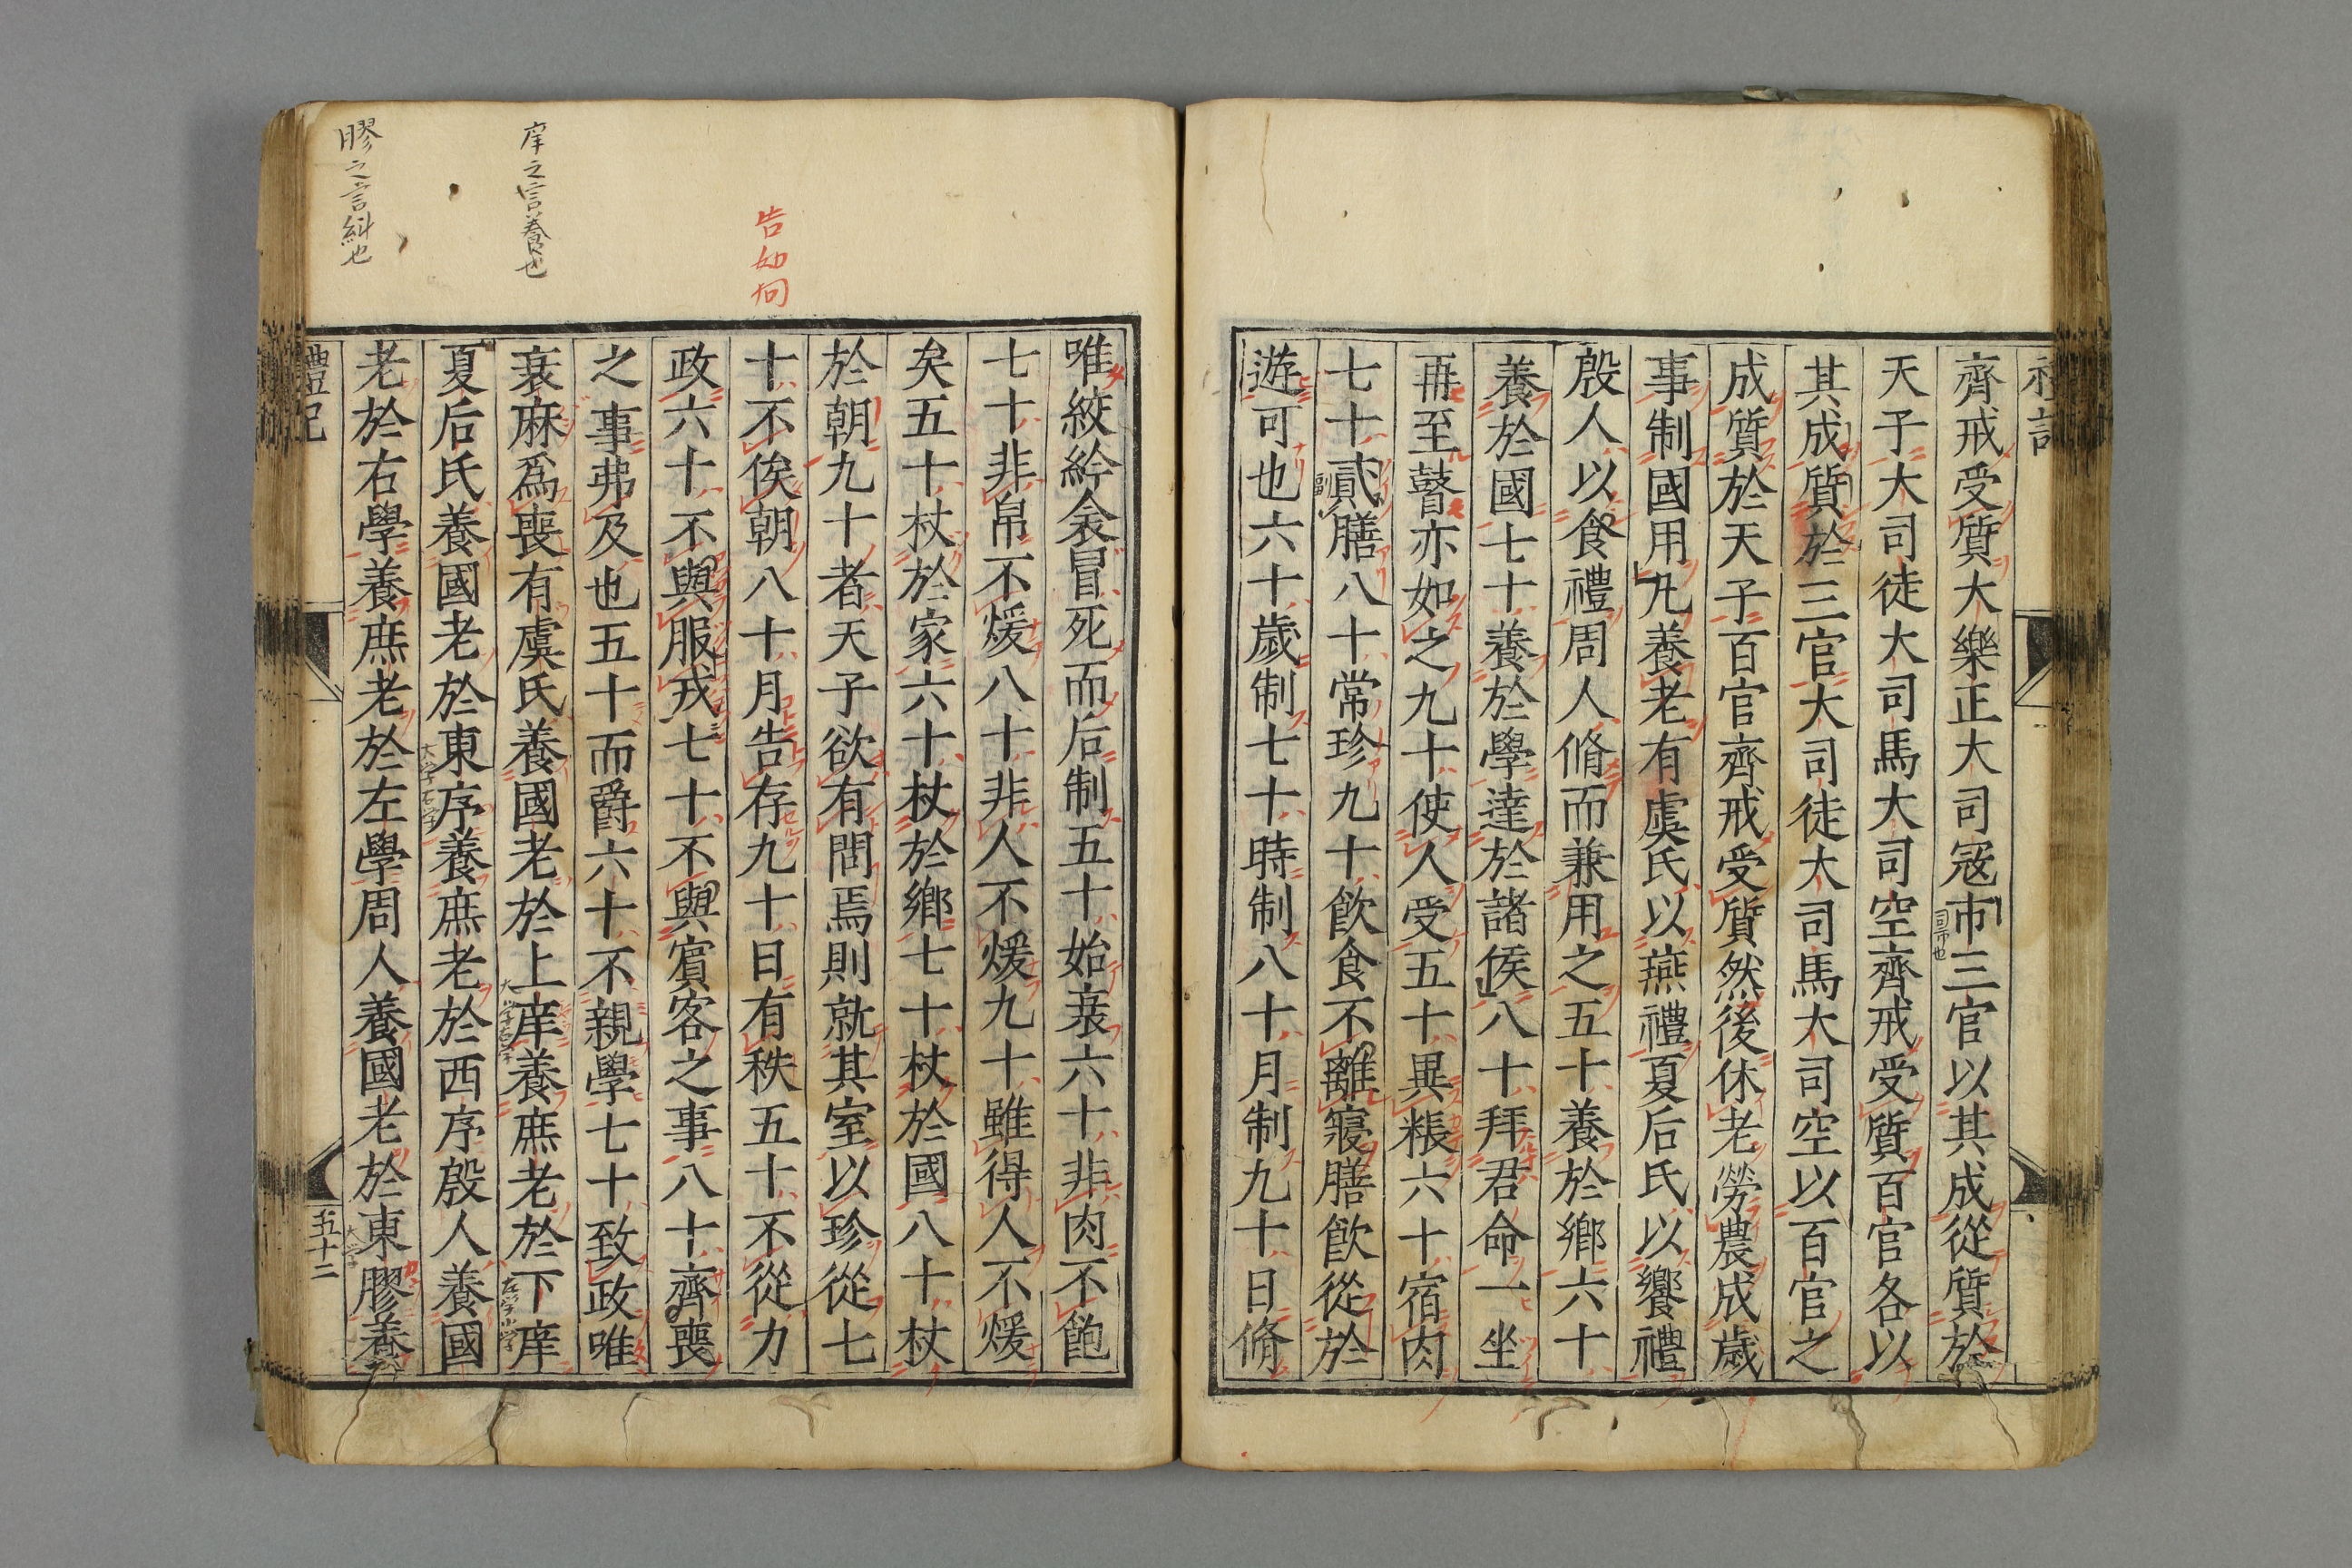 齊戒受質大樂正大司寇市三官以其成從質於
司市也
天子大司徒大司馬大司空齊戒受質百官各以
其成質於三官大司徒大司馬大司空以百官之
成質於天子百官齊戒受質然後休老勞農成歲
事制國用凡養老有虞氏以燕禮夏后氏以饗禮
殷人以食禮周人脩而兼用之五十養於鄉六十
養於國七十養於學達於諸侯八十拜君命一坐
再至瞽亦如之九十使人受五十異粻六十宿肉
七十貳膳八十常珍九十飮食不離寢膳飮從於
副
遊可也六十歲制七十時制八十月制九十日脩
唯絞紟衾冒死而后制五十始衰六十非肉不飽
七十非帛不煖八十非人不煖九十雖得人不煖
矣五十杖於家六十杖於鄉七十杖於國八十杖
於朝九十者天子欲有問焉則就其室以珍從七
告如向
十不俟朝八十月告存九十日有秩五十不從力
政六十不與服戎七十不與賓客之事八十齊喪
之事弗及也五十而爵六十不親學七十致政唯
庠之言養也
衰麻爲喪有虞氏養國老於上庠養庶老於下庠
大学右学
左学小学
夏后氏養國老於東序養庶老於西序殷人養國
大学
膠之言糾也
老於右學養庶老於左學周人養國老於東膠養
大学
禮記
五十二